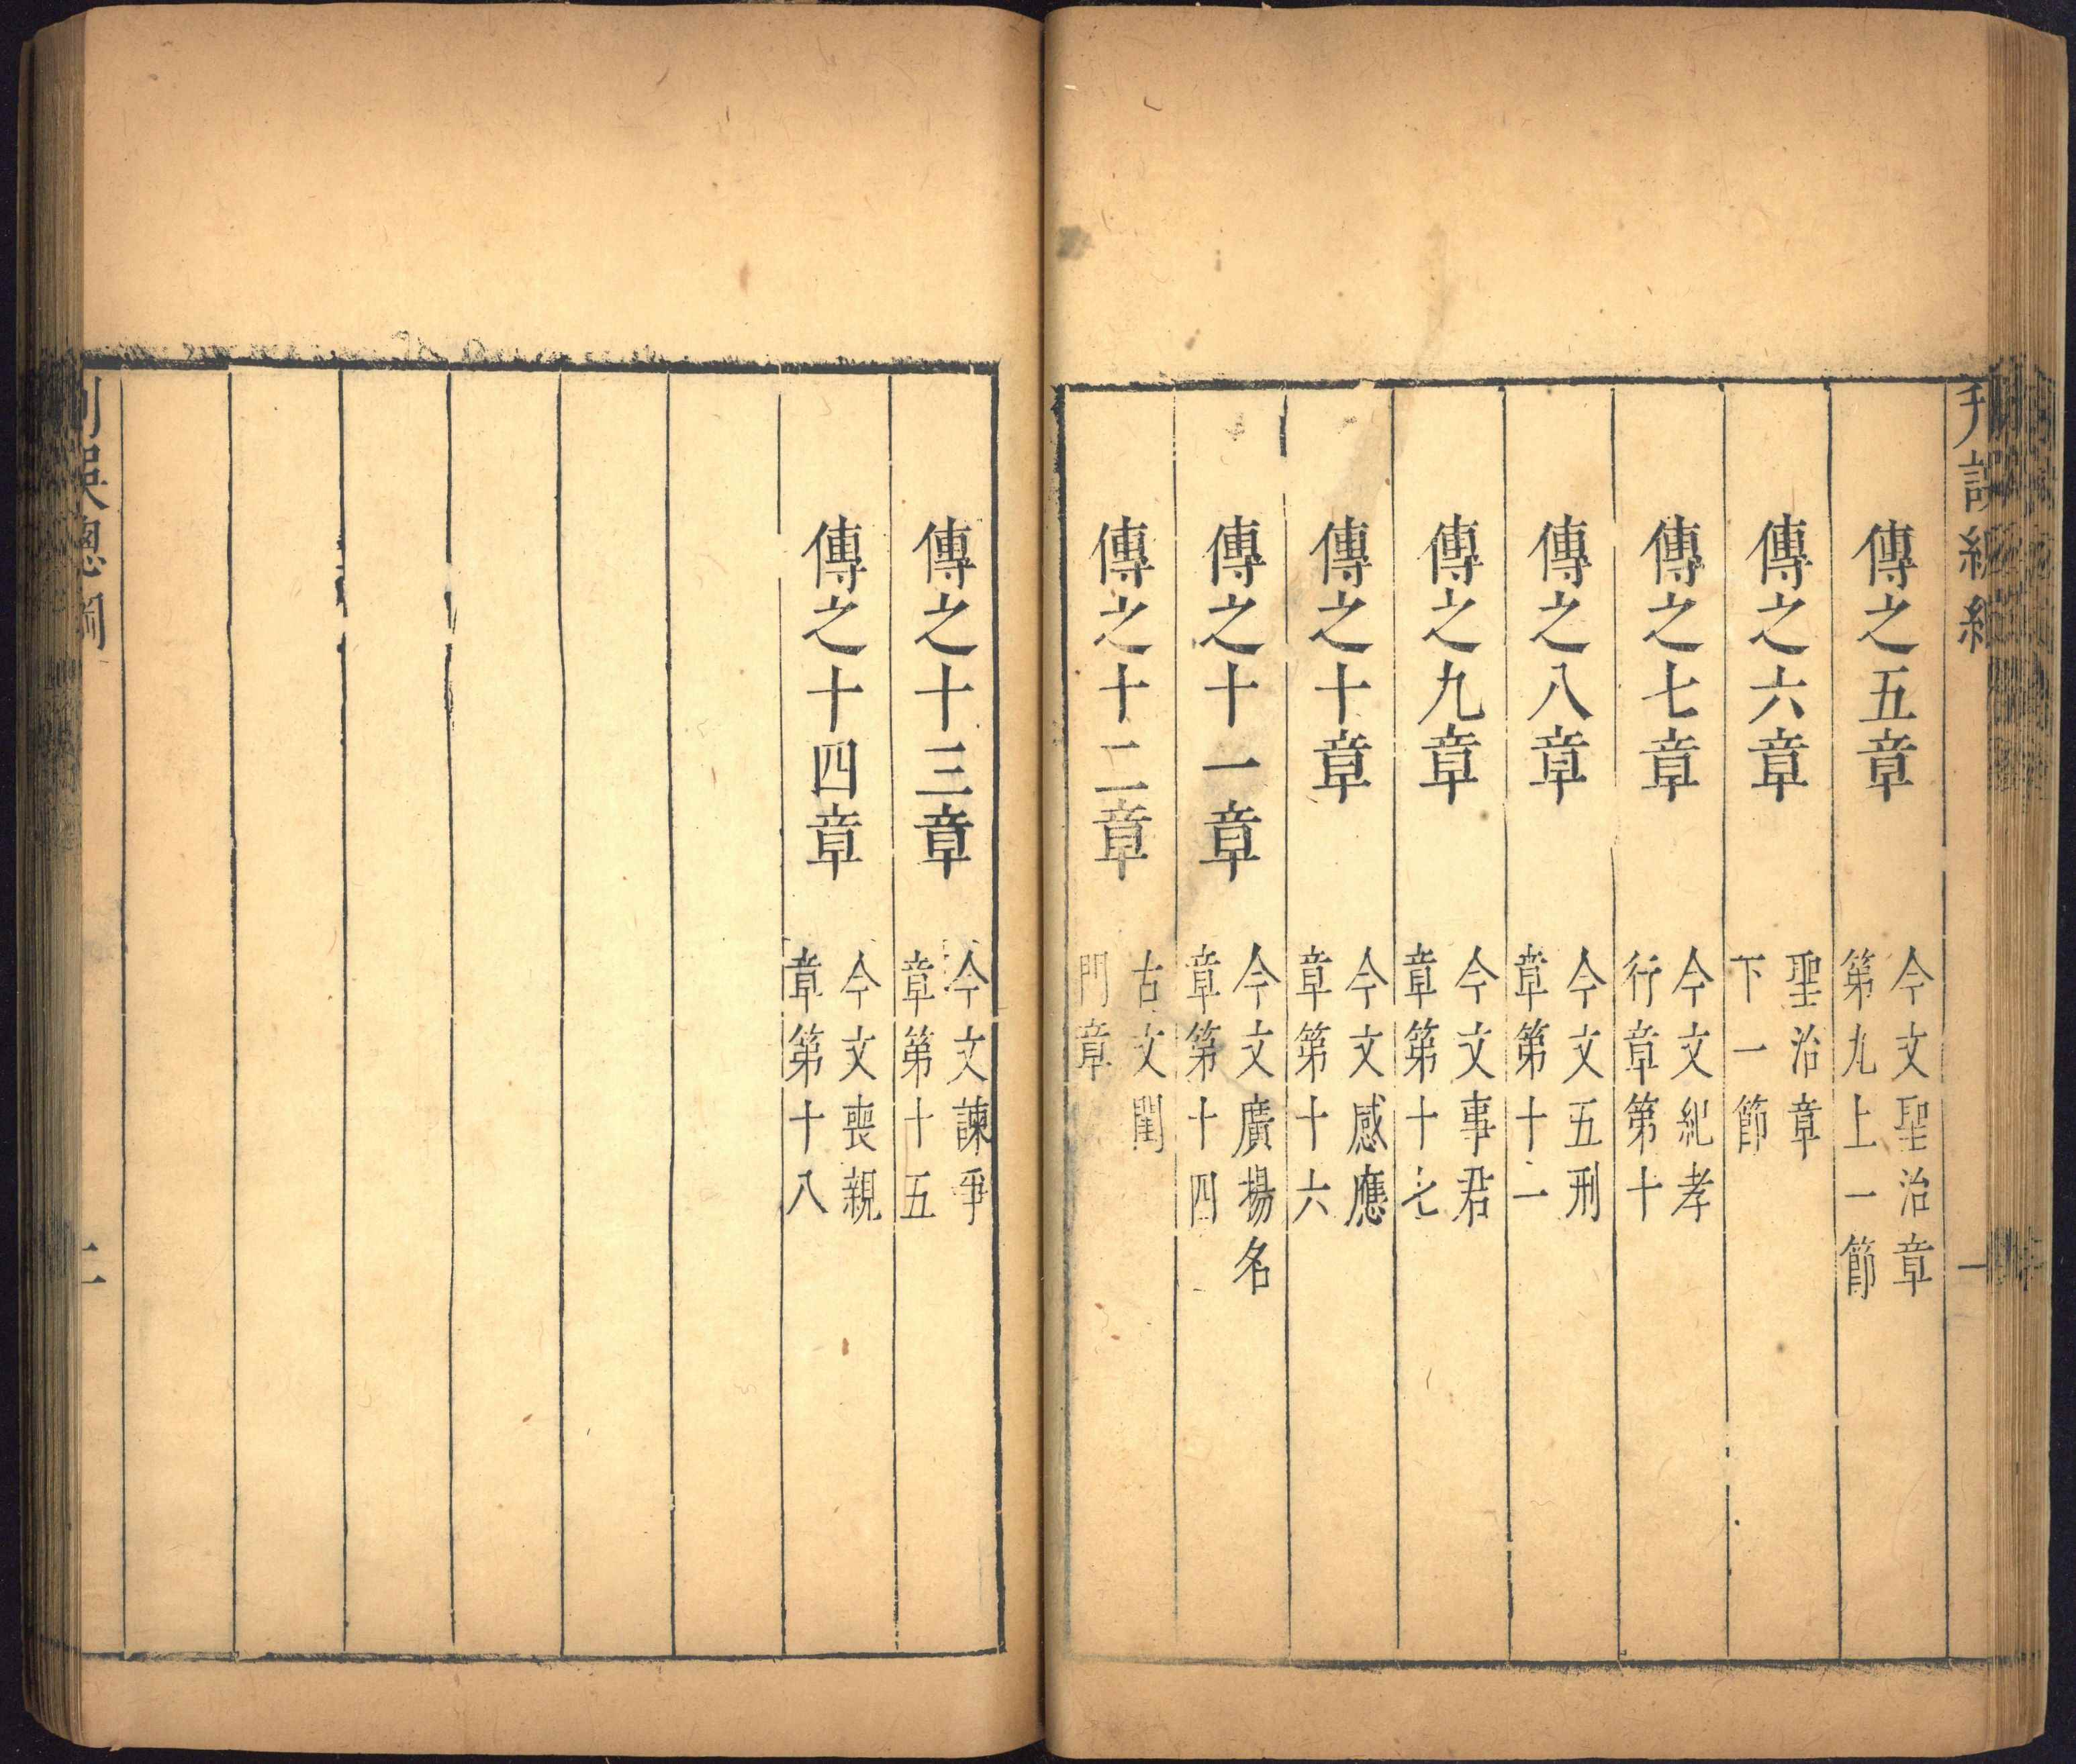 傳之五章 今文聖治章
第九上一節
傳之六章 聖治章
下一節
傳之七章 今文紀孝
行章第十
傳之八章 今文五刑
章第十一
傳之九章 今文事君
章第十七
傳之十章 今文感應
章第十六
傳之十一章 今文廣揚名
章第十四
傳之十二章 古文閨
門章
傳之十三章 今文諫爭
章第十五
傳之十四章 今文喪親
章第十八